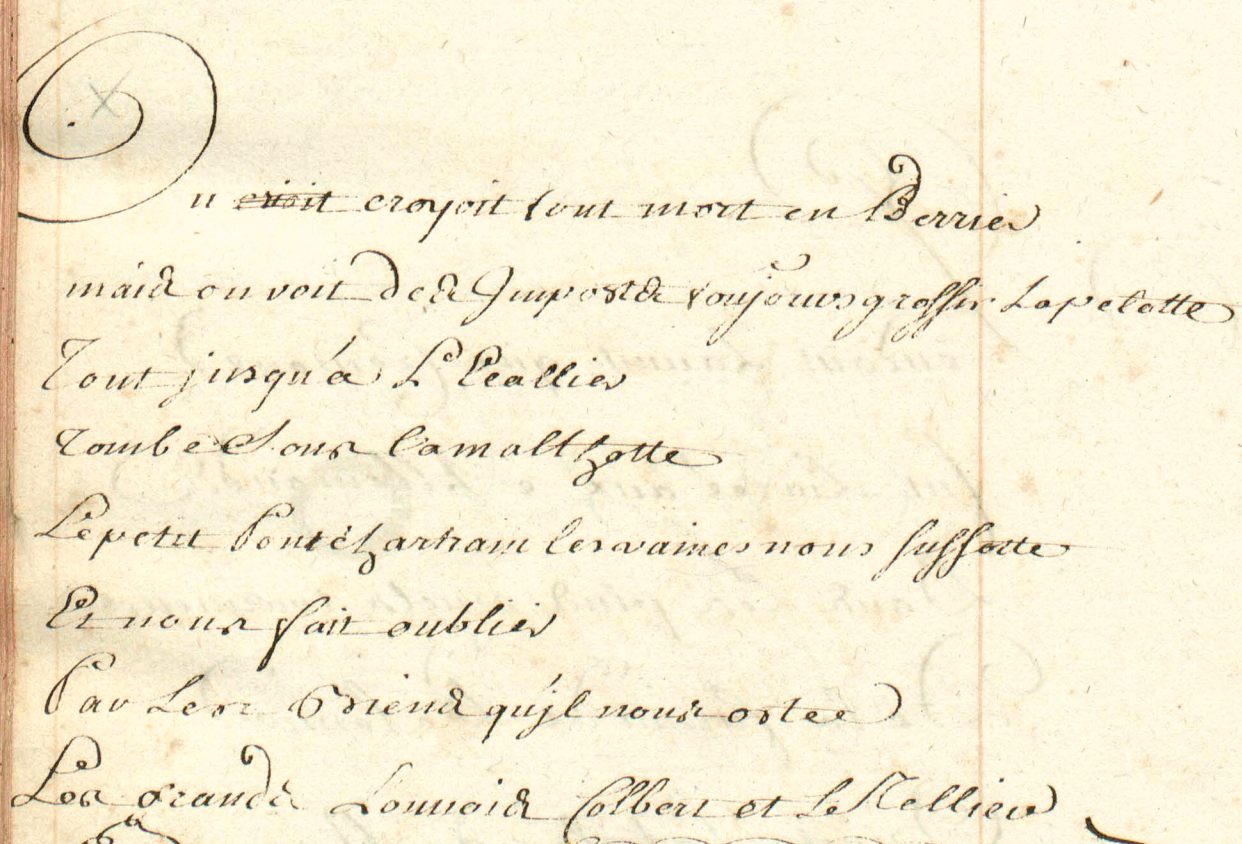 On crioit croyoit tout mort en Berrier
mais on voit des Imposts toujours grossir La pelotte
Tout jusqu'à L'Ecallier
Tombe Sous la malthotte
Le petit Pontchartrain les vaines nous sussotte
Et nous fait oublier
Par Les biens qu'jl nous ostee
Les grands Louvois Colbert et Le Tellier